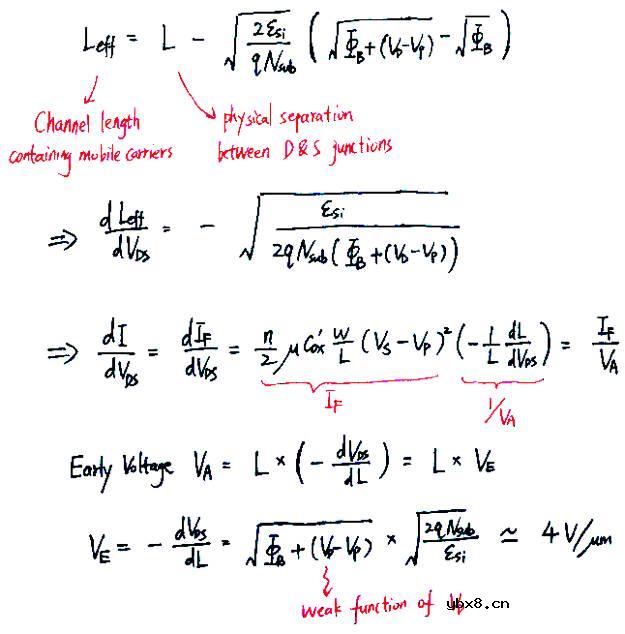 L_eff = L − √(2ε_si / qN_sub) ( √(Φ_B + (V_D − V_P)) − √Φ_B )
Channel length
containing mobile carriers
physical separation
between D & S junctions
⇒ dL_eff / dV_DS = − √( ε_si / 2qN_sub(Φ_B + (V_D − V_P)) )
⇒ dI / dV_DS = dI_F / dV_DS = n/2 μ C'_ox W/L (V_S − V_P)² (− 1/L dL/dV_DS) = I_F / V_A
I_F
1/V_A
Early Voltage V_A = L × (− dV_DS / dL) = L × V_E
V_E = − dV_DS / dL = √(Φ_B + (V_D − V_P)) × √(2qN_sub / ε_si) ≃ 4 V/μm
weak function of
ybx8.cn